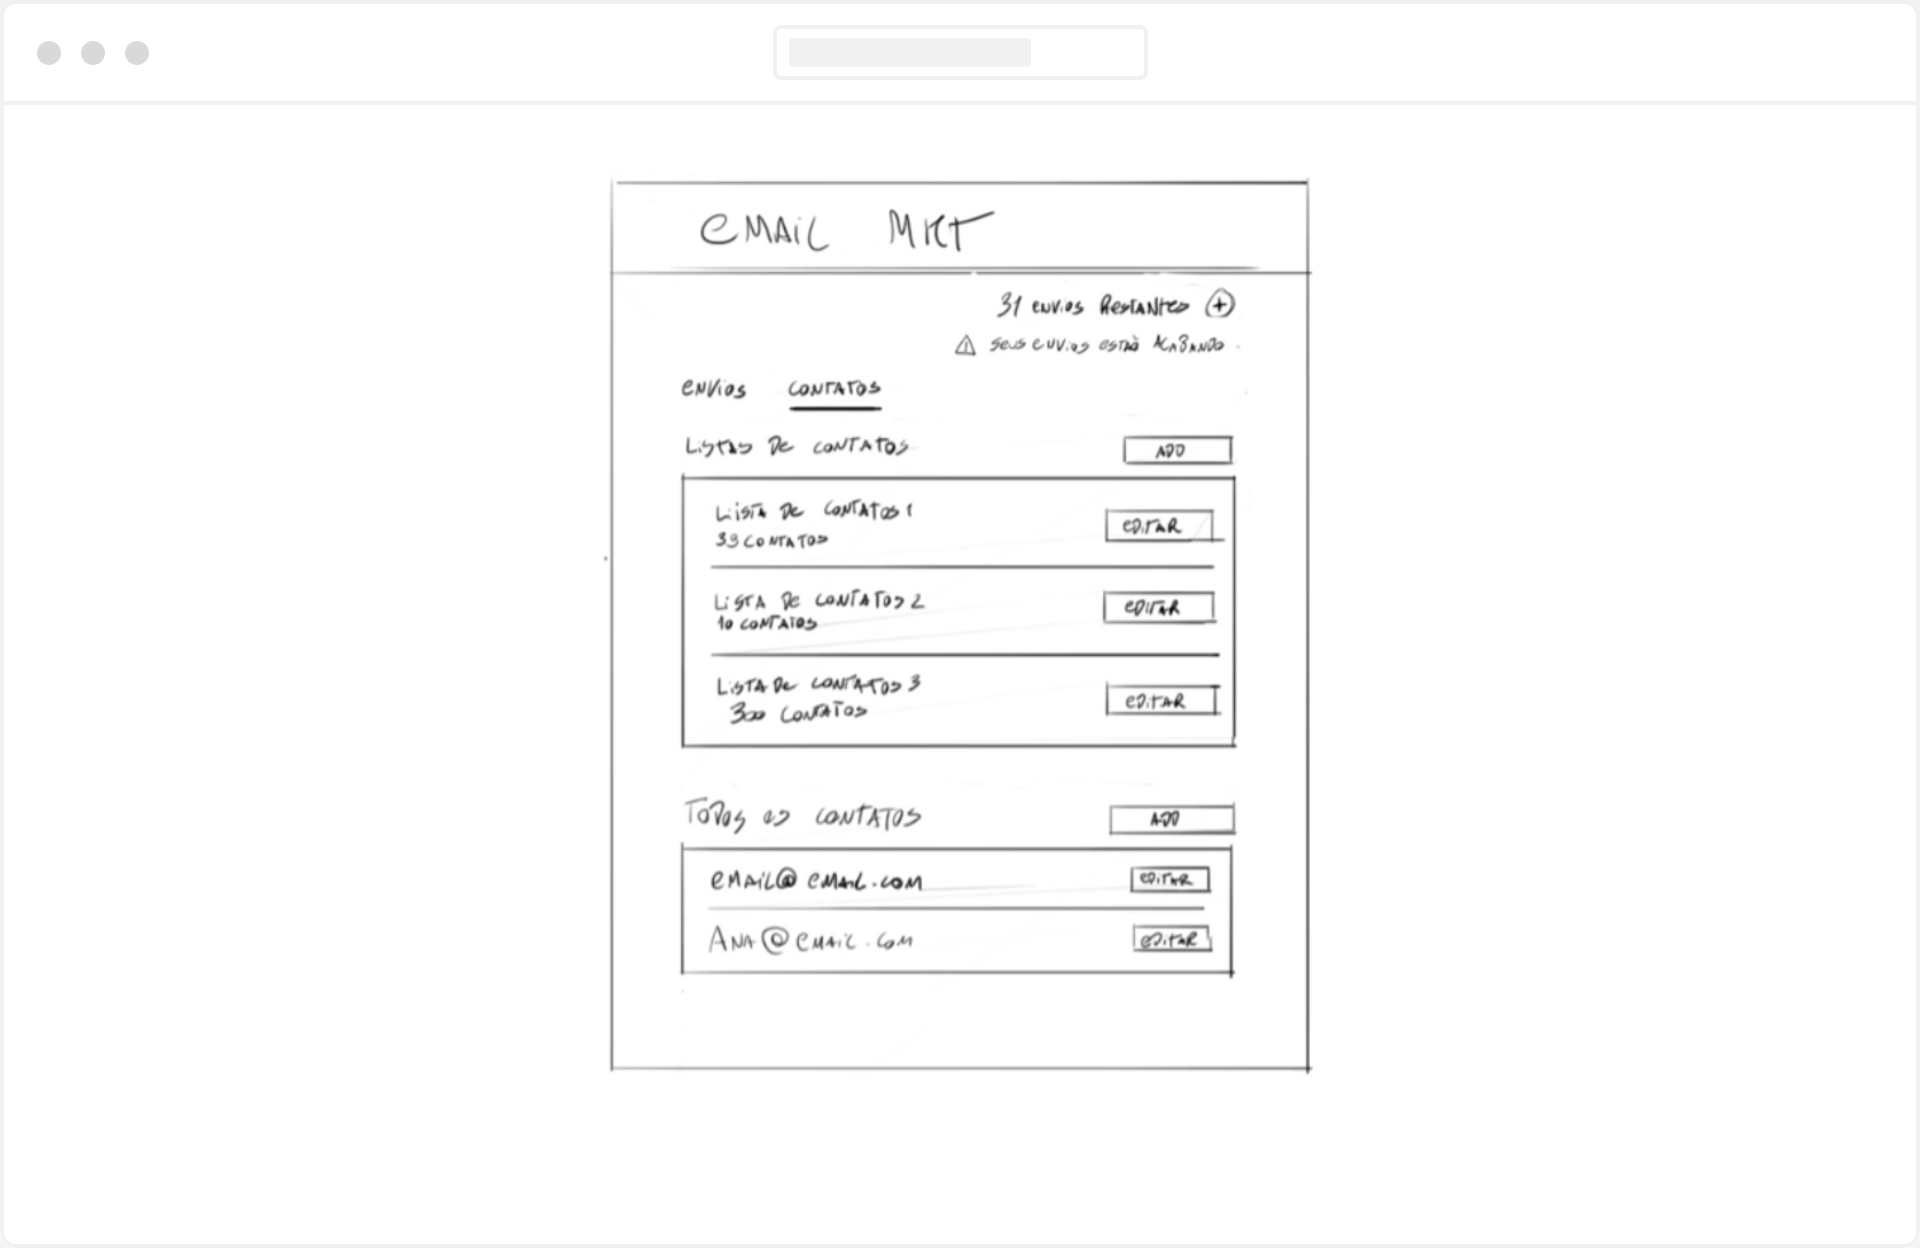 EMAIL MKT
31 ENVIOS RESTANTES +
SEUS ENVIOS ESTÃO ACABANDO.
ENVIOS CONTATOS
LISTAS DE CONTATOS ADD
LISTA DE CONTATOS 1
EDITAR
33 CONTATOS
LISTA DE CONTATOS 2
EDITAR
10 CONTATOS
LISTA DE CONTATOS 3
EDITAR
300 CONTATOS
TODOS OS CONTATOS ADD
EMAIL@EMAIL.COM EDITAR
ANA@EMAIL.COM EDITAR